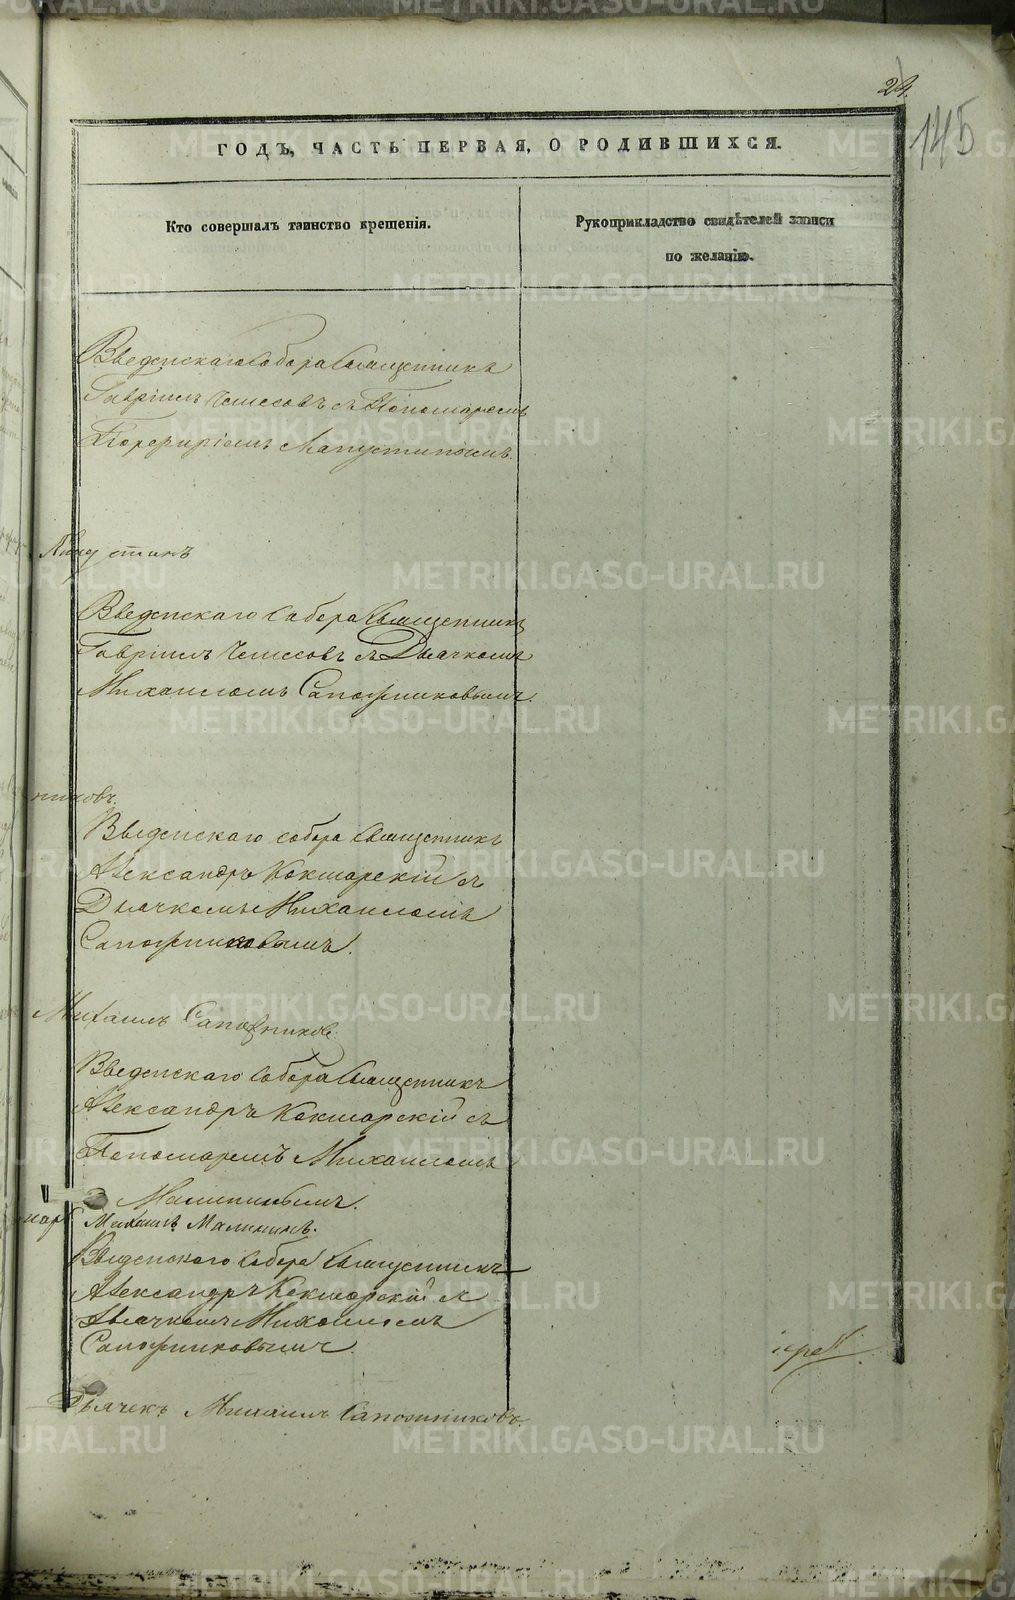 24.
145
ГОДЪ, ЧАСТЬ ПЕРВАЯ, О РОДИВШИХСЯ.
Кто совершалъ таинство крещенія.
Рукоприкладство свидѣтелей записи
по желанію.
Введенскаго Собора Священникъ
Гавріилъ Чемесовъ съ Пономаремъ
Порфиріемъ Мапустинымъ.
Введенскаго Собора Священникъ
Гавріилъ Чемесовъ съ Дьячкомъ
Михаиломъ Сапожниковымъ.
никовъ.
Введенскаго собора Священникъ
Александръ Кокшарскій съ
Дьячкомъ Михаиломъ
Сапожниковымъ.
Михаилъ Сапожниковъ
Введенскаго Собора Священникъ
Александръ Кокшарскій съ
Пономаремъ Михаиломъ
Малининымъ.
Михаилъ Малининъ.
Введенскаго Собора Священникъ
Александръ Кокшарскій съ
Дьячкомъ Михаиломъ
Сапожниковымъ.
Дьячекъ Михаилъ Сапожниковъ.
METRIKI.GASO-URAL.RU